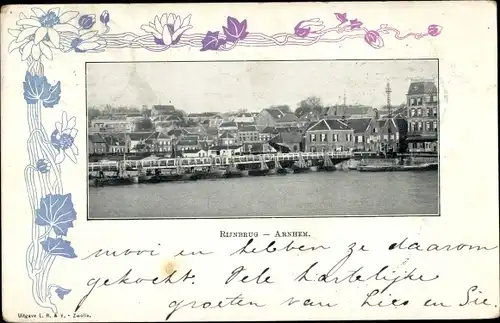 RIJNBRUG – ARNHEM.
mooi en hebben ze daarom
gekocht. Vele hartelijke
groeten van Lies en Sie
Uitgave L. R. & V. - Zwolle.